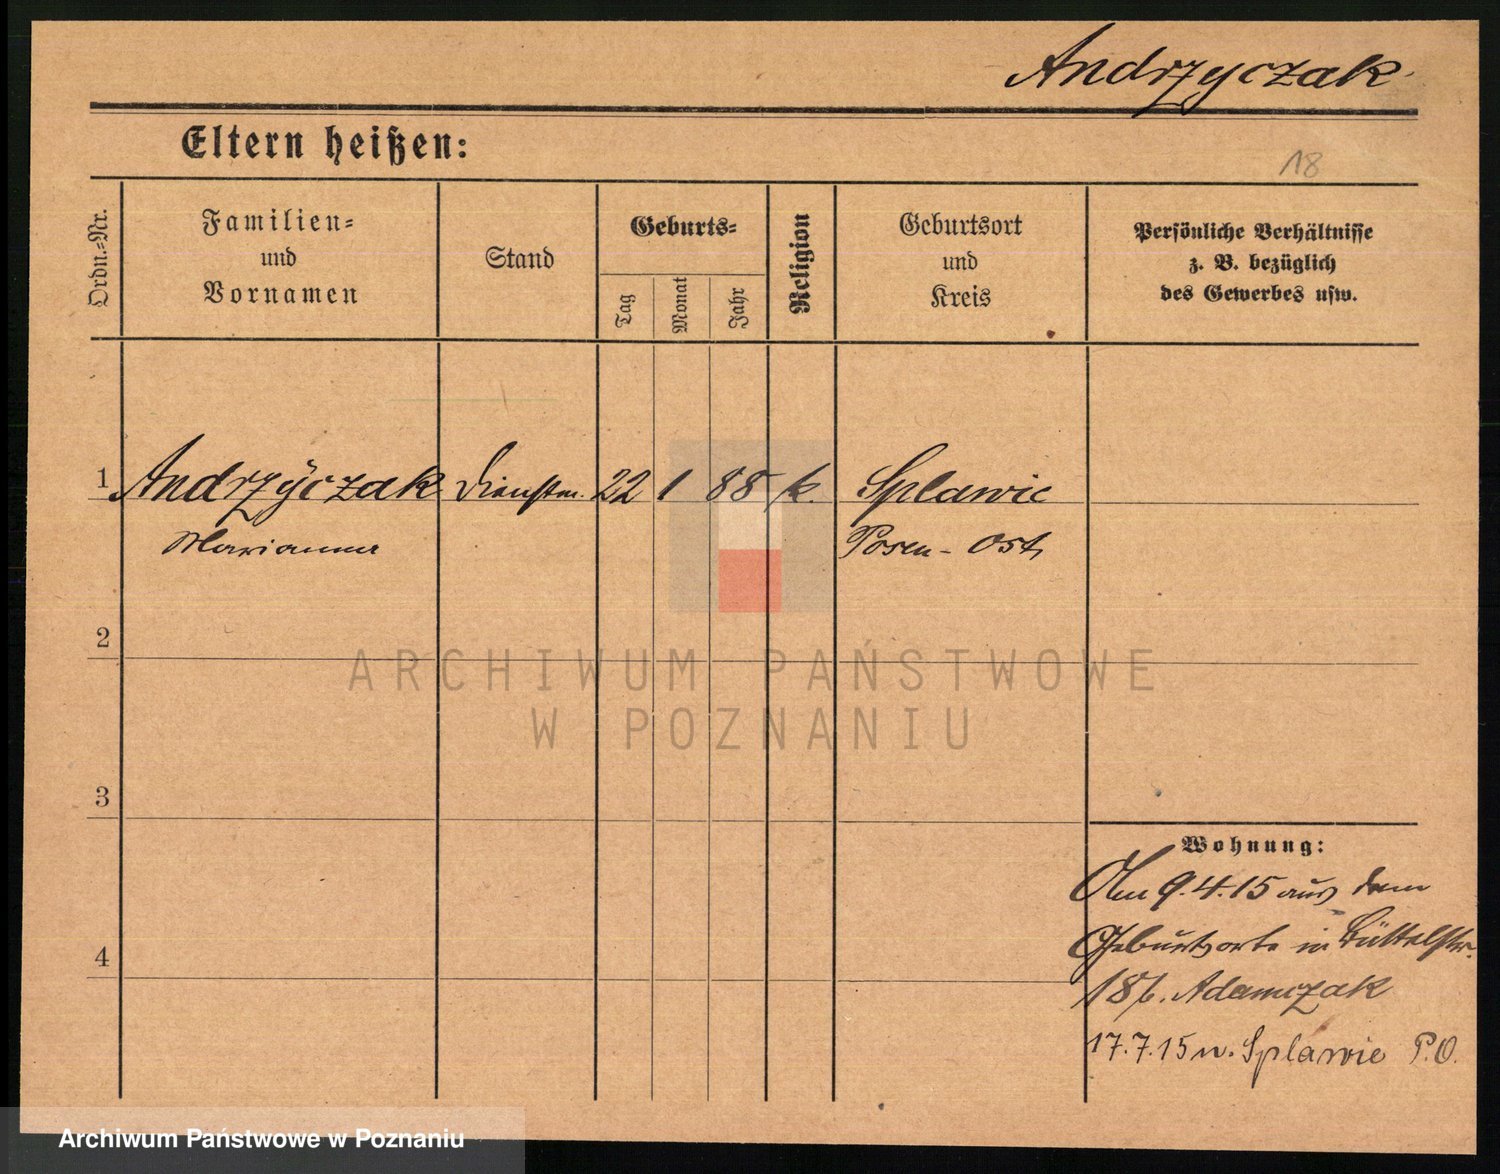 Andrzyczak
Eltern heißen:
18
Ordn.=Nr.
Familien=
und
Vornamen
Stand
Geburts=
Tag
Monat
Jahr
Religion
Geburtsort
und
Kreis
Persönliche Verhältnisse
z. B. bezüglich
des Gewerbes usw.
1 Andrzyczak Dienstm. 22 1 88 k. Splawie
Marianna Posen - Ost
2
ARCHIWUM PAŃSTWOWE
W POZNANIU
3
Wohnung:
Am 9.4.15 aus dem
Geburtsorte in Büttelstr.
4
18 b. Adamczak
17.7.15 n. Splawie P.O.
Archiwum Państwowe w Poznaniu